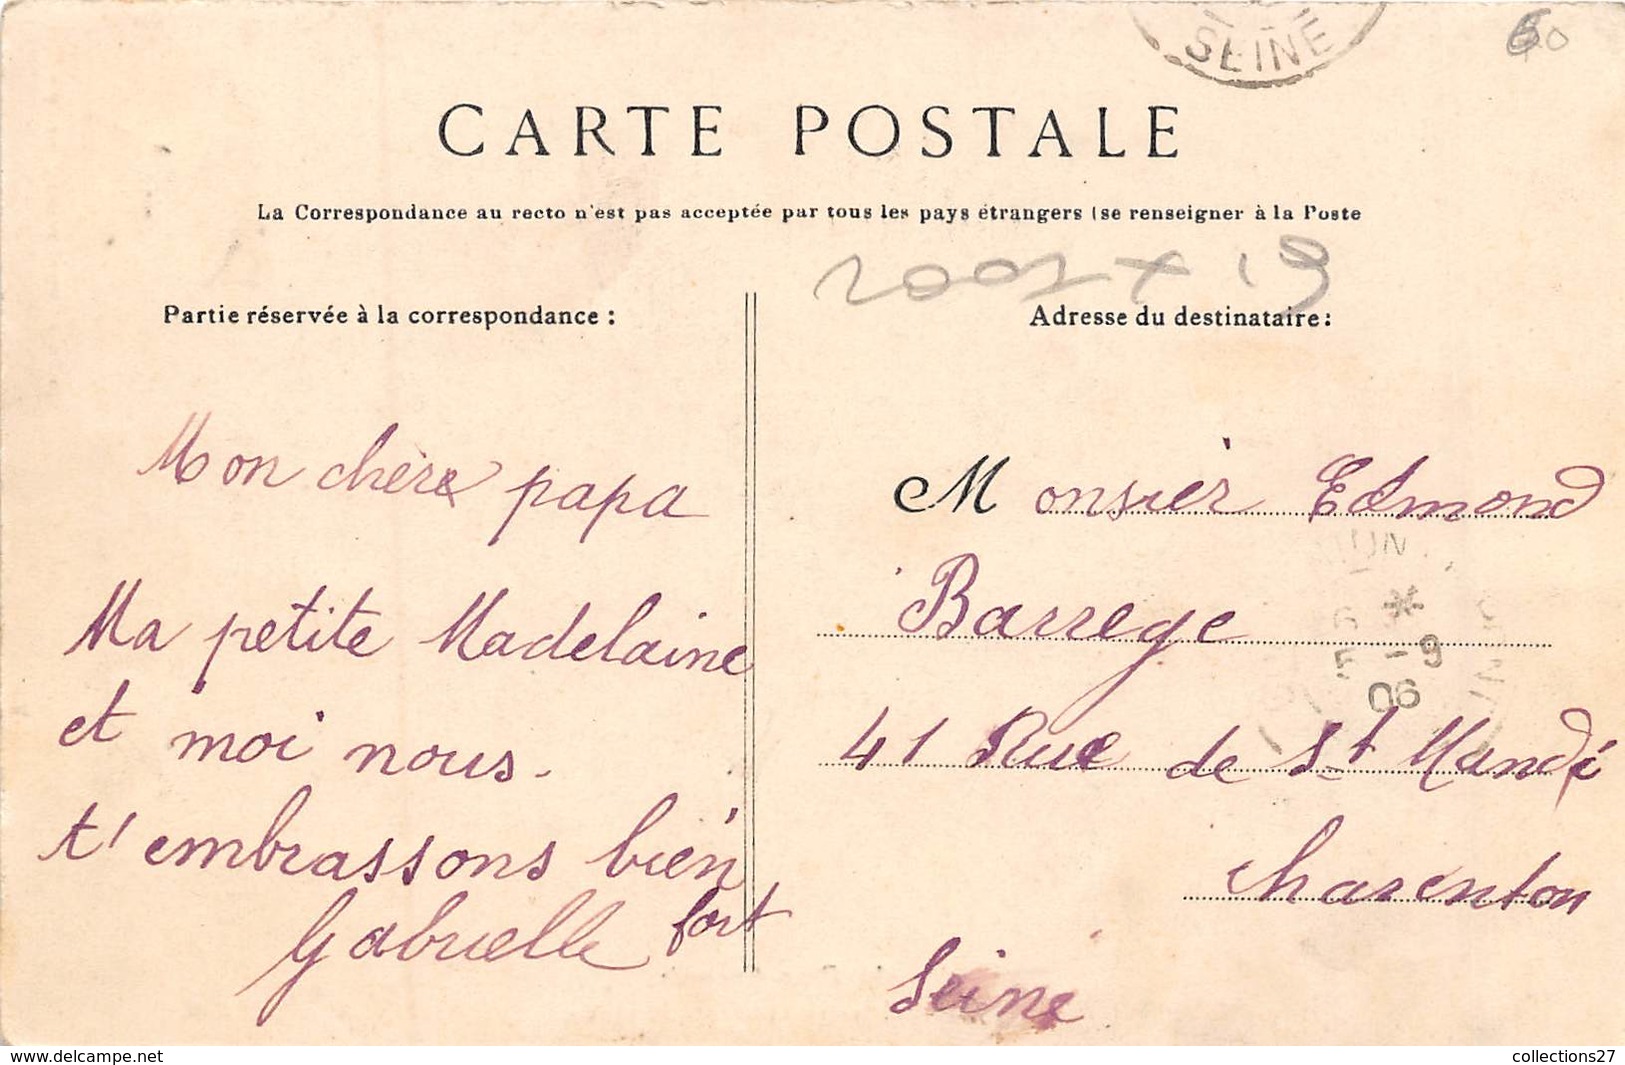 SEINE
60
CARTE POSTALE
La Correspondance au recto n'est pas acceptée par tous les pays étrangers (se renseigner à la Poste
Partie réservée à la correspondance :
Adresse du destinataire :
Mon chère papa
Ma petite Madelaine
et moi nous
t'embrassons bien
fort
Gabrielle
Monsier Edmond
Barrege
41 Rue de St Mandé
Charenton
Seine
5 -9
06
www.delcampe.net
collections27